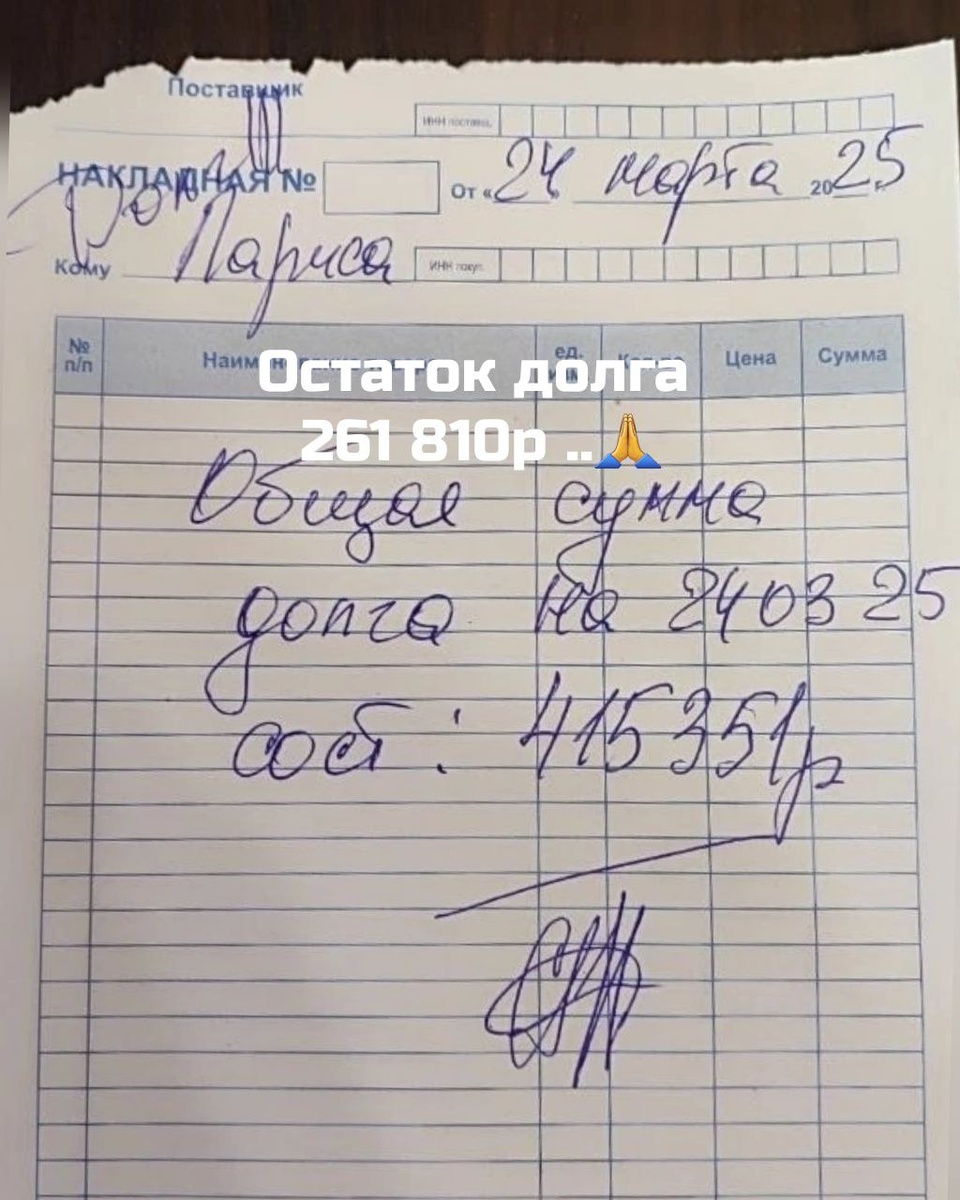 Поставщик
ИНН поставщ.
НАКЛАДНАЯ № От « 24 » марта 2025 г.
Кому Лариса ИНН покуп.
№ п/п ед. Цена Сумма
Остаток долга
261 810р ..🙏
Общая сумма
долга на 24 03 25
сост : 415 351р